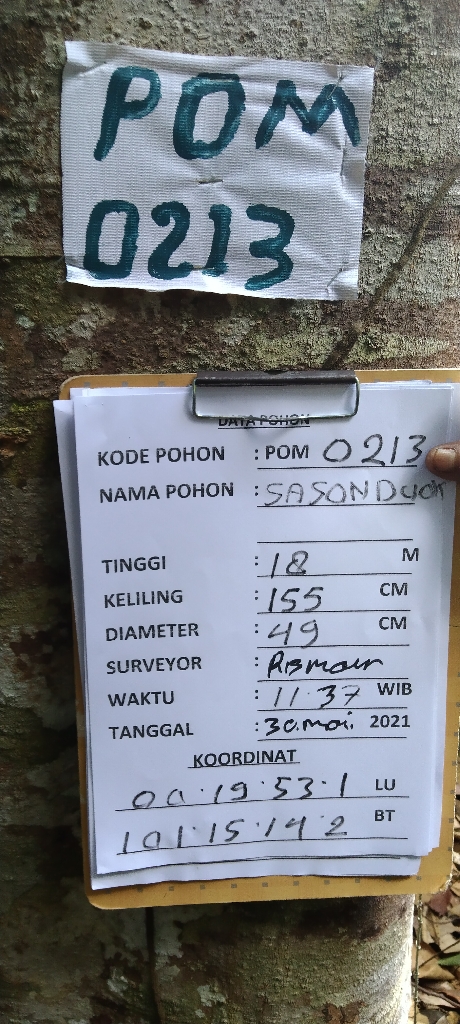 POM
0213
DATA POHON
KODE POHON : POM 0213
NAMA POHON : SASONDUOK
TINGGI : 18 M
KELILING : 155 CM
DIAMETER : 49 CM
SURVEYOR :
WAKTU : 11.37 WIB
TANGGAL : 30.mai. 2021
KOORDINAT
00.19.53.1 LU
101.15.14.2 BT